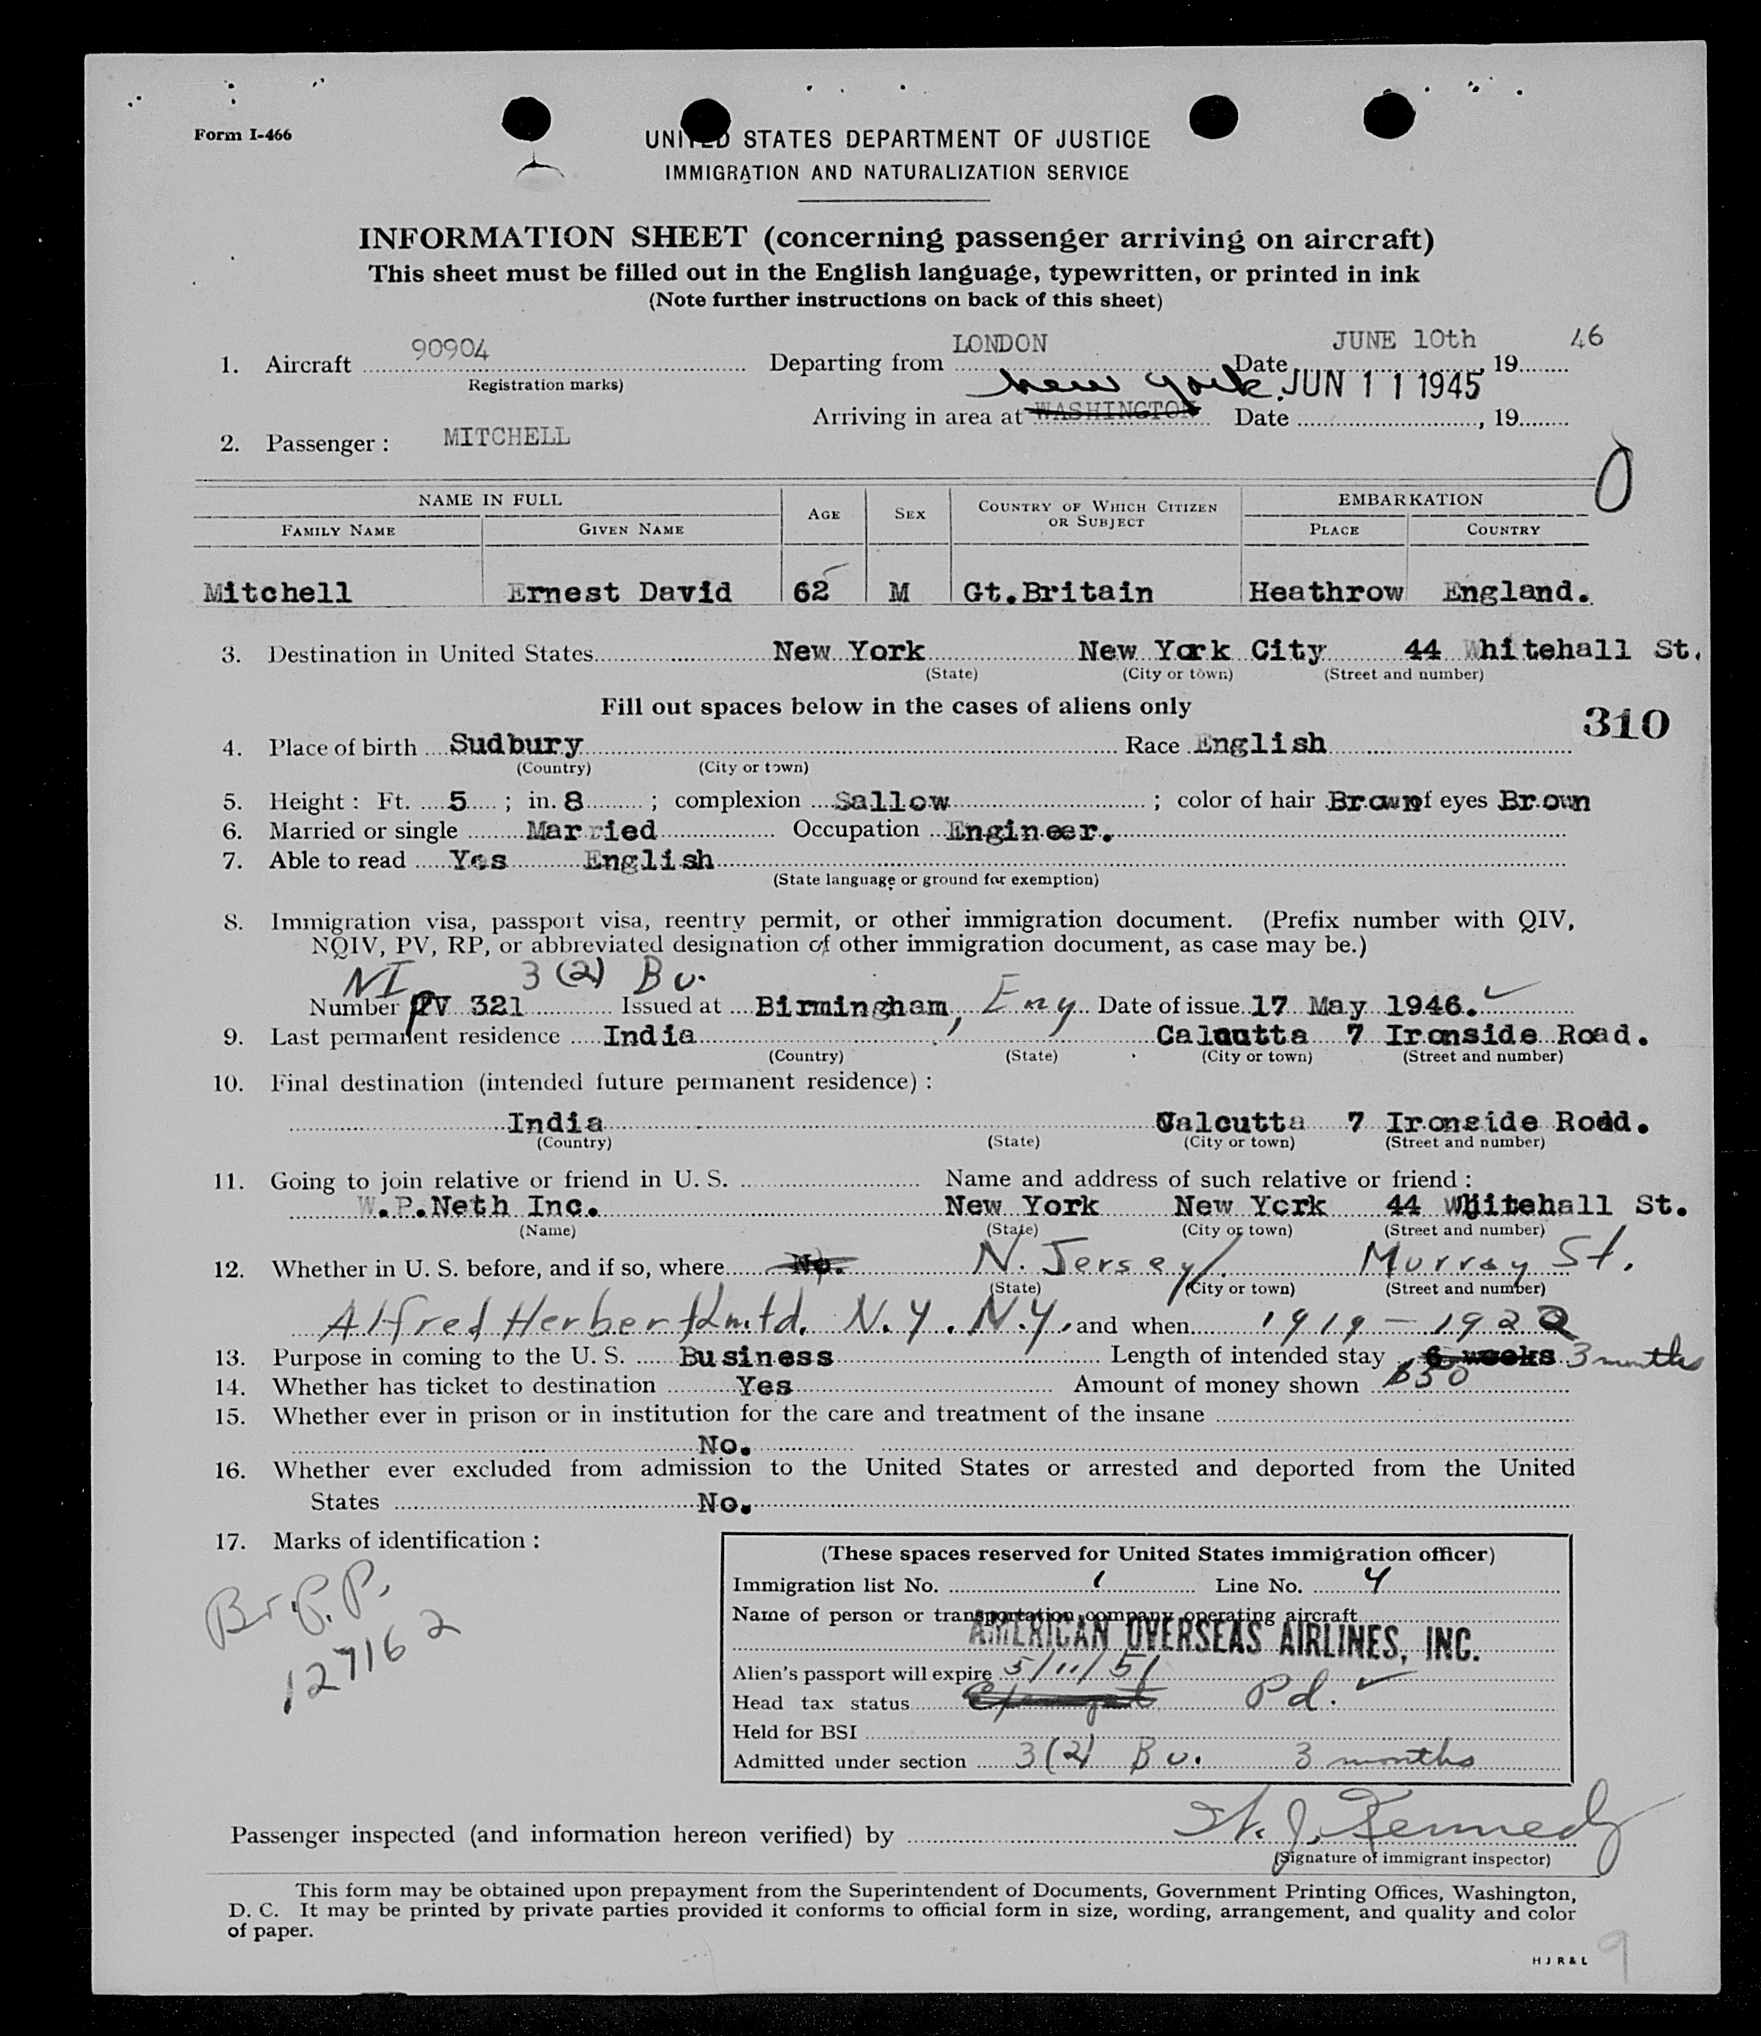 Form I-466
UNITED STATES DEPARTMENT OF JUSTICE
IMMIGRATION AND NATURALIZATION SERVICE
INFORMATION SHEET (concerning passenger arriving on aircraft)
This sheet must be filled out in the English language, typewritten, or printed in ink
(Note further instructions on back of this sheet)
1. Aircraft 90904 Departing from LONDON Date JUNE 10th, 19 46
Registration marks)
New York JUN 11 1945
Arriving in area at WASHINGTON Date , 19
2. Passenger : MITCHELL
0
NAME IN FULL AGE SEX COUNTRY OF WHICH CITIZEN OR SUBJECT EMBARKATION
FAMILY NAME GIVEN NAME PLACE COUNTRY
Mitchell Ernest David 62 M Gt.Britain Heathrow England.
3. Destination in United States New York New York City 44 Whitehall St.
(State) (City or town) (Street and number)
Fill out spaces below in the cases of aliens only
310
4. Place of birth Sudbury Race English
(Country) (City or town)
5. Height : Ft. 5 ; in. 8 ; complexion Sallow ; color of hair Brown of eyes Brown
6. Married or single Married Occupation Engineer.
7. Able to read Yes English
(State language or ground for exemption)
8. Immigration visa, passport visa, reentry permit, or other immigration document. (Prefix number with QIV,
NQIV, PV, RP, or abbreviated designation of other immigration document, as case may be.)
NI 3 (2) Bu.
Number PV 321 Issued at Birmingham, Eng Date of issue 17 May 1946.
9. Last permanent residence India Calcutta 7 Ironside Road.
(Country) (State) (City or town) (Street and number)
10. Final destination (intended future permanent residence) :
India Calcutta 7 Ironside Road.
(Country) (State) (City or town) (Street and number)
11. Going to join relative or friend in U. S. Name and address of such relative or friend :
W.P.Neth Inc. New York New York 44 Whitehall St.
(Name) (State) (City or town) (Street and number)
12. Whether in U. S. before, and if so, where No. N. Jersey Murray St.
(State) (City or town) (Street and number)
Alfred Herbert Ltd. N.Y. N.Y. and when 1919 - 1922
13. Purpose in coming to the U. S. Business Length of intended stay 6 weeks 3 months
14. Whether has ticket to destination Yes Amount of money shown $50
15. Whether ever in prison or in institution for the care and treatment of the insane
No.
16. Whether ever excluded from admission to the United States or arrested and deported from the United
States No.
17. Marks of identification :
Br. P.P.
127162
(These spaces reserved for United States immigration officer)
Immigration list No. 1 Line No. 4
Name of person or transportation company operating aircraft
AMERICAN OVERSEAS AIRLINES, INC.
Alien's passport will expire 5/11/51
Head tax status Pd.
Held for BSI
Admitted under section 3(2) Bu. 3 months
Passenger inspected (and information hereon verified) by W. J. Kennedy
(Signature of immigrant inspector)
This form may be obtained upon prepayment from the Superintendent of Documents, Government Printing Offices, Washington,
D. C. It may be printed by private parties provided it conforms to official form in size, wording, arrangement, and quality and color
of paper.
H J R & L
9